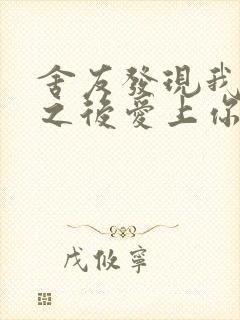 舍友發現我
之後愛上你
戊攸寧